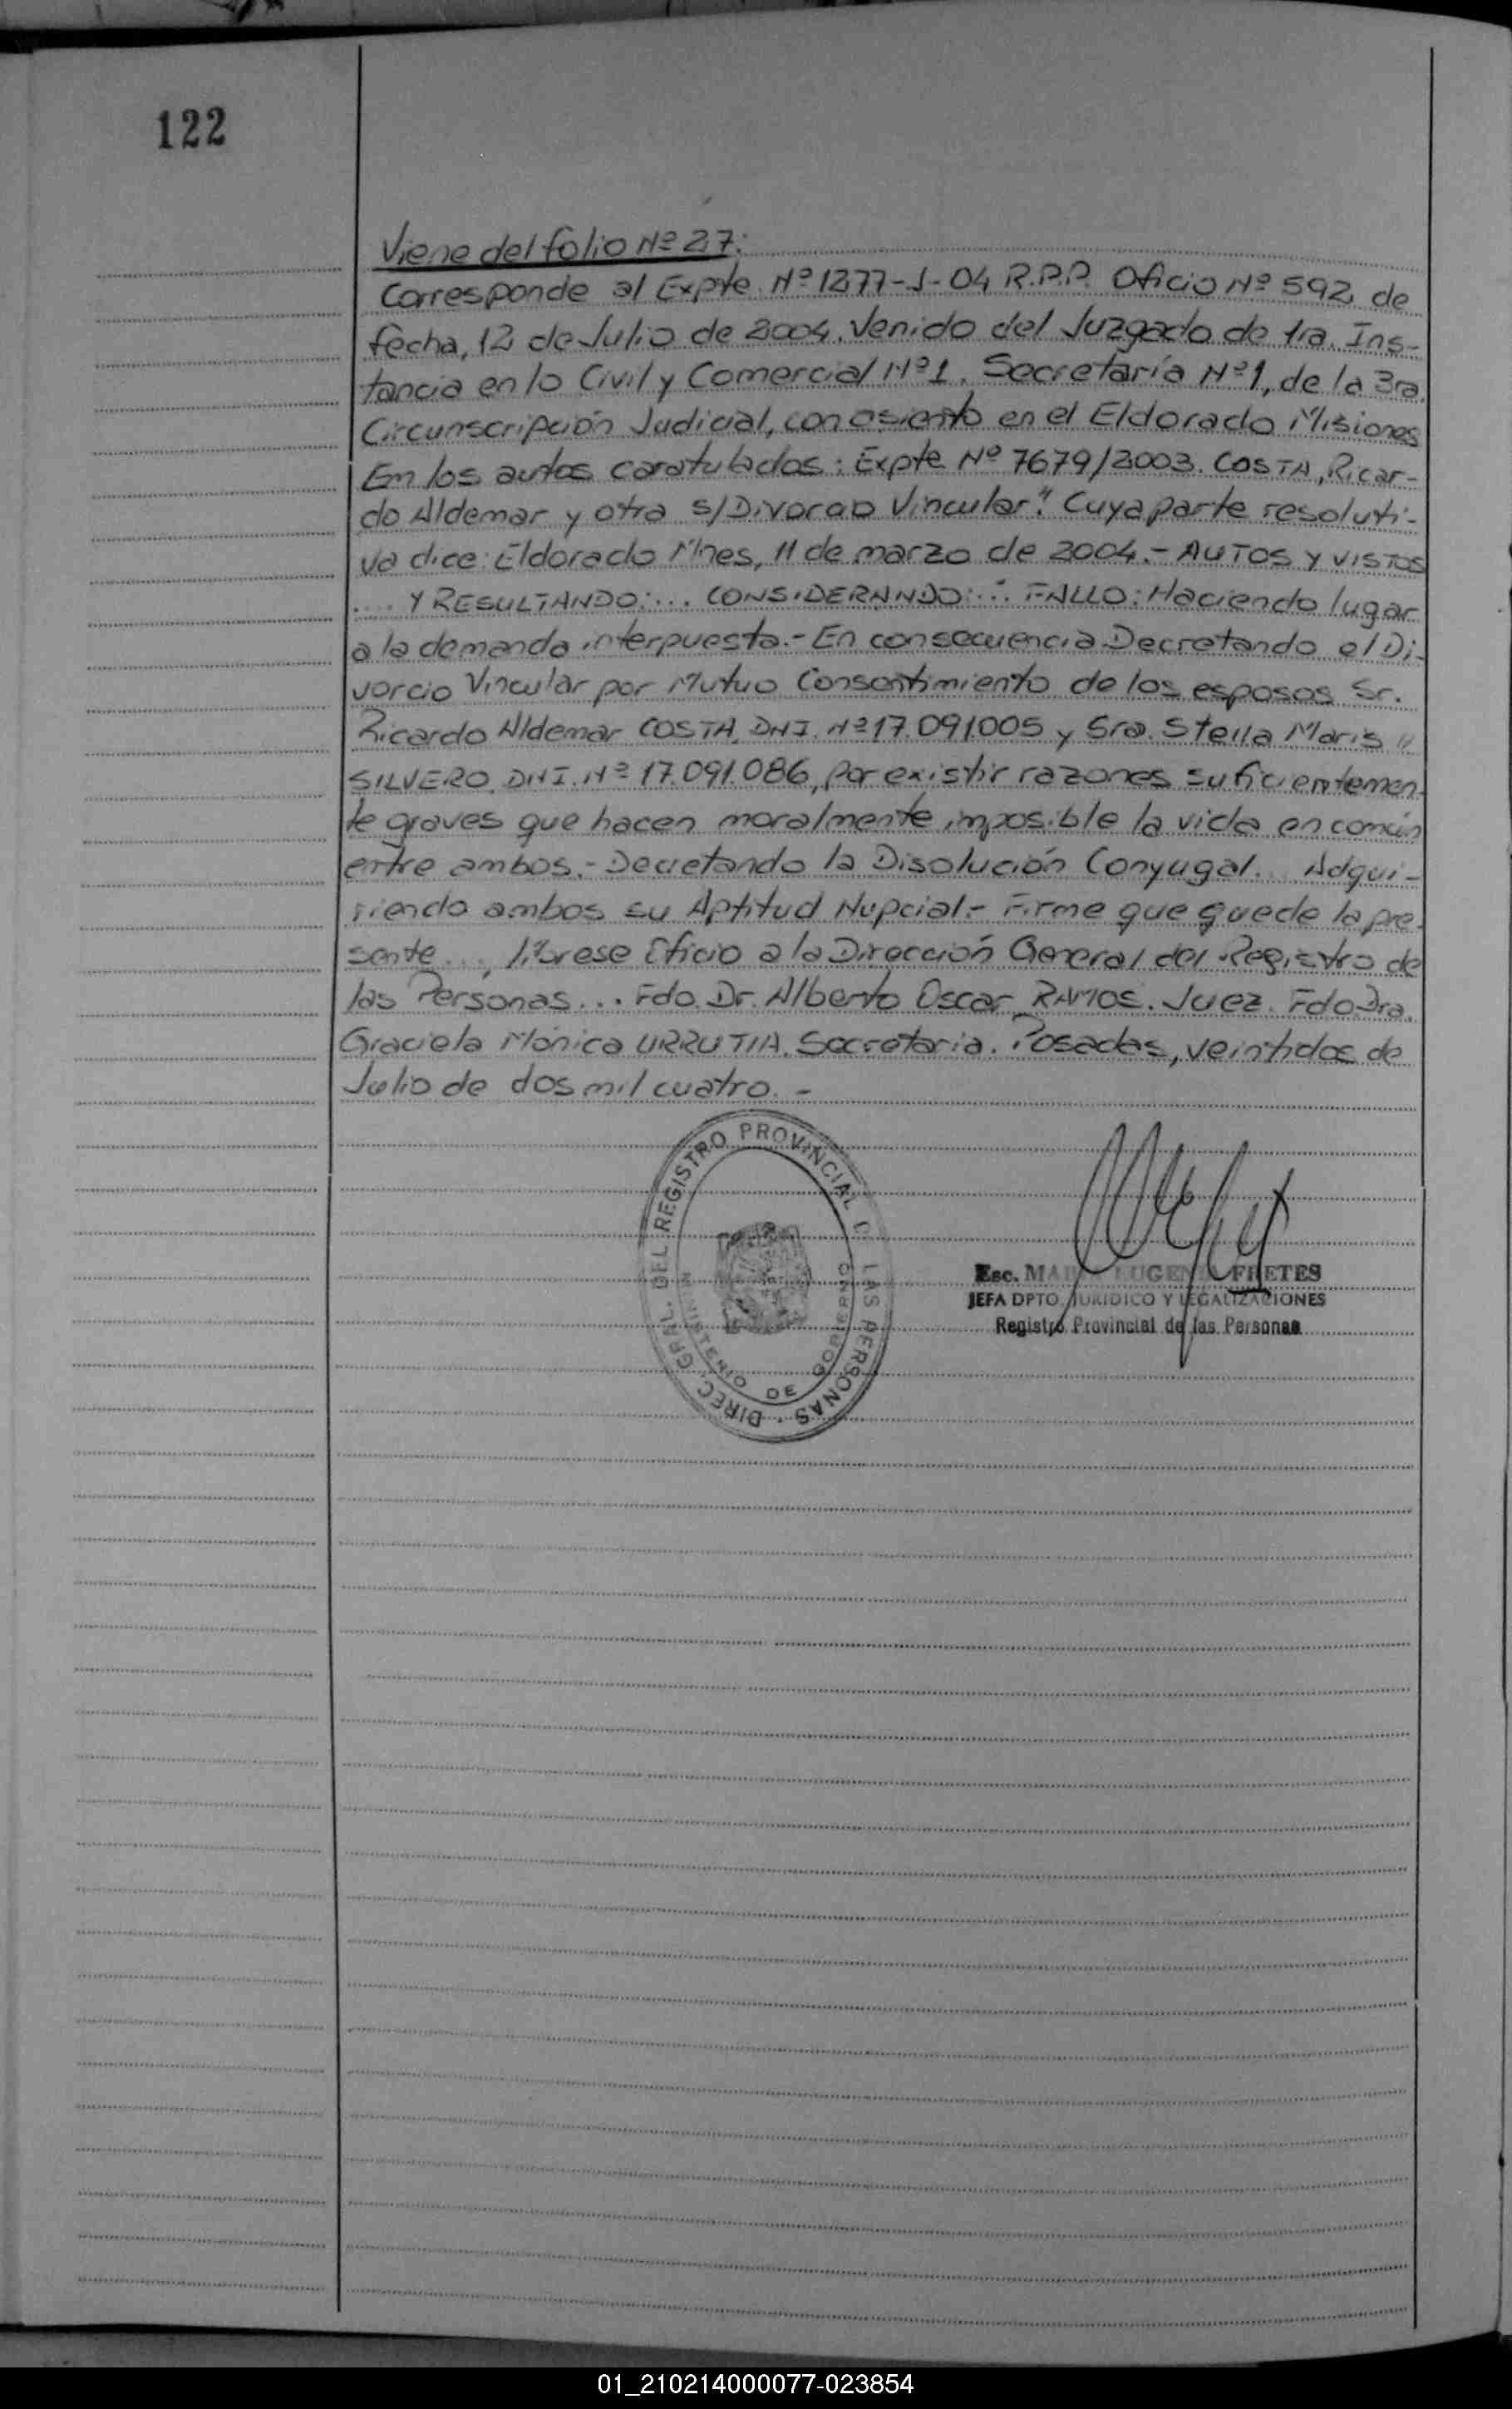 122
Viene del folio Nº 27:
Corresponde al Expte. Nº 1277-J-04 R.P.P. Oficio Nº 592 de
fecha, 12 de Julio de 2004. Venido del Juzgado de 1ra. Ins-
tancia en lo Civil y Comercial Nº 1. Secretaría Nº 1, de la 3ra.
Circunscripción Judicial, con asiento en el Eldorado Misiones
En los autos caratulados: Expte Nº 7679/2003. COSTA, Ricar-
do Aldemar y otra s/Divorcio Vincular". Cuya parte resoluti-
va dice: Eldorado Mnes, 11 de marzo de 2004.- AUTOS Y VISTOS
.... Y RESULTANDO:... CONSIDERANDO:... FALLO: Haciendo lugar
a la demanda interpuesta.- En consecuencia Decretando el Di-
vorcio Vincular por Mutuo Consentimiento de los esposos Sr.
Ricardo Aldemar COSTA, DNI. Nº 17.091.005 y Sra. Stella Maris "
SILVERO, DNI. Nº 17.091.086, por existir razones suficientemen-
te graves que hacen moralmente imposible la vida en común
entre ambos.- Decretando la Disolución Conyugal. Adqui-
riendo ambos su Aptitud Nupcial.- Firme que quede la pre-
sente..., líbrese Oficio a la Dirección General del Registro de
las Personas... Fdo. Dr. Alberto Oscar RAMOS. Juez. Fdo. Dra.
Graciela Mónica URRUTIA. Secretaria. Posadas, veintidos de
Julio de dos mil cuatro.-
DIREC. GRAL. DEL REGISTRO PROVINCIAL DE LAS PERSONAS
MINISTERIO DE GOBIERNO
Esc. MARIA EUGENIA FRETES
JEFA DPTO. JURIDICO Y LEGALIZACIONES
Registro Provincial de las Personas
01_210214000077-023854